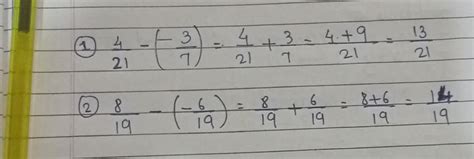 ① 4/21 - (-3/7) = 4/21 + 3/7 = 4+9/21 = 13/21
② 8/19 - (-6/19) = 8/19 + 6/19 = 8+6/19 = 14/19